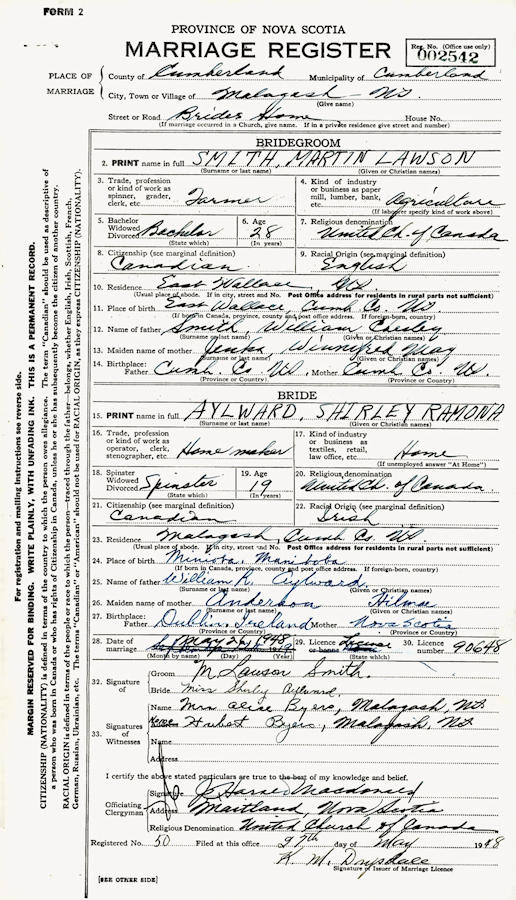 FORM 2
PROVINCE OF NOVA SCOTIA
MARRIAGE REGISTER
Reg. No. (Office use only)
002542
PLACE OF MARRIAGE
County of Cumberland Municipality of Cumberland
City, Town or Village of Malagash - N.S.
(Give name)
Street or Road Brides Home House No.
(If marriage occurred in a Church, give name. If in a private residence give street and number)
BRIDEGROOM
2. PRINT name in full SMITH, MARTIN LAWSON
(Surname or last name) (Given or Christian names)
3. Trade, profession or kind of work as spinner, grader, clerk, etc. Farmer
4. Kind of industry or business as paper mill, lumber, bank, etc. Agriculture
(If laborer specify kind of work above)
5. Bachelor Widowed Divorced Bachelor
(State which)
6. Age 28
(In years)
7. Religious denomination
United Ch. of Canada
8. Citizenship (see marginal definition)
Canadian
9. Racial Origin (see marginal definition)
English
10. Residence East Wallace, N.S.
(Usual place of abode. If in city, street and No. Post Office address for residents in rural parts not sufficient)
11. Place of birth East Wallace, Cumb. Co. N.S.
(If born in Canada, province, county and post office address. If foreign-born, country)
12. Name of father Smith, William Chesley
(Surname or last name) (Given or Christian names)
13. Maiden name of mother Jenks Winnifred May
(Surname or last name) (Given or Christian names)
14. Birthplace: Father Cumb. Co. N.S. Mother Cumb. Co. N.S.
(Province or Country) (Province or Country)
BRIDE
15. PRINT name in full AYLWARD, SHIRLEY RAMONA
(Surname or last name) (Given or Christian names)
16. Trade, profession or kind of work as operator, clerk, stenographer, etc. Home maker
17. Kind of industry or business as textiles, retail, law office, etc. Home
(If unemployed answer "At Home")
18. Spinster Widowed Divorced Spinster
(State which)
19. Age 19
(In years)
20. Religious denomination
United Ch. of Canada
21. Citizenship (see marginal definition)
Canadian
22. Racial Origin (see marginal definition)
Irish
23. Residence Malagash, Cumb. Co. N.S.
(Usual place of abode. If in city, street and No. Post Office address for residents in rural parts not sufficient)
24. Place of birth Miniota, Manitoba
(If born in Canada, province, county and post office address. If foreign-born, country)
25. Name of father William R. Aylward
(Surname or last name) (Given or Christian names)
26. Maiden name of mother Anderson Hilma
(Surname or last name) (Given or Christian names)
27. Birthplace: Father Dublin, Ireland Mother Nova Scotia
(Province or Country) (Province or Country)
28. Date of marriage May 1948
(Month by name) (Day) (Year)
29. Licence or banns License
(State which)
30. Licence number 90648
32. Signature of
Groom M. Lawson Smith.
Bride Miss Shirley Aylward.
33. Signatures of Witnesses
Name Mrs Alice Byers, Malagash, N.S.
Hubert Byers, Malagash, N.S.
Name
Address
I certify the above stated particulars are true to the best of my knowledge and belief.
Officiating Clergyman
Signature J. Harned Macdonald
Address Maitland, Nova Scotia
Religious Denomination United Church of Canada
Registered No. 50 Filed at this office 27th day of May 1948
K. M. Drysdale
Signature of Issuer of Marriage Licence
[SEE OTHER SIDE]
For registration and mailing instructions see reverse side.
MARGIN RESERVED FOR BINDING. WRITE PLAINLY, WITH UNFADING INK. THIS IS A PERMANENT RECORD.
CITIZENSHIP (NATIONALITY) is defined in terms of the country to which the person owes allegiance. The term "Canadian" should be used as descriptive of
a person who was born in Canada or who has rights of Citizenship in Canada, unless he or she has subsequently become the citizen of another country.
RACIAL ORIGIN is defined in terms of the people or race to which the person—traced through the father—belongs, whether English, Irish, Scottish, French,
German, Russian, Ukrainian, etc. The terms "Canadian" or "American" should not be used for RACIAL ORIGIN, as they express CITIZENSHIP (NATIONALITY).